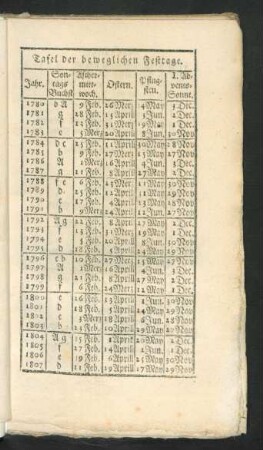 Tafel der beweglichen Festtage.
Jahr. Sontags Buchst. Aschermittwoch. Ostern. Pfingsten. 1. Advents-Sonnt.
1780 b A 9 Feb. 26 Merz 14 May 3 Dec.
1781 g 28 Feb. 15 Aprill 3 Jun. 2 Dec.
1782 f 13 Feb. 31 Merz 19 May 1 Dec.
1783 e 5 Merz 20 Aprill 8 Jun. 30 Nov
1784 d c 25 Feb. 11 Aprill 30 May 28 Nov
1785 b 9 Feb. 27 Merz 15 May 27 Nov
1786 A 1 Merz 16 Aprill 4 Jun. 3 Dec.
1787 g 21 Feb. 8 Aprill 27 May 2 Dec.
1788 f e 6 Feb. 23 Merz 11 May 30 Nov
1789 d 25 Feb. 12 Aprill 31 May 29 Nov
1790 c 17 Feb. 4 Aprill 23 May 28 Nov
1791 b 9 Merz 24 Aprill 12 Jun. 27 Nov
1792 A g 22 Feb. 8 Aprill 27 May 2 Dec.
1793 f 13 Feb. 31 Merz 19 May 1 Dec.
1794 e 5 Merz 20 Aprill 8 Jun. 30 Nov
1795 d 18 Feb. 5 Aprill 24 May 29 Nov
1796 c b 10 Feb. 27 Merz 15 May 27 Nov
1797 A 1 Merz 16 Aprill 4 Jun. 3 Dec.
1798 g 21 Feb. 8 Aprill 27 May 2 Dec.
1799 f 6 Feb. 24 Merz 12 May 1 Dec.
1800 e 26 Feb. 13 Aprill 1 Jun. 30 Nov
1801 d 18 Feb. 5 Aprill 24 May 29 Nov
1802 c 3 Merz 18 Aprill 6 Jun. 28 Nov
1803 b 23 Feb. 10 Aprill 29 May 27 Nov
1804 A g 15 Feb. 1 Aprill 20 May 2 Dec.
1805 f 27 Feb. 14 Aprill 2 Jun. 1 Dec.
1806 e 19 Feb. 6 Aprill 25 May 30 Nov
1807 d 11 Feb. 29 Merz 17 May 29 Nov